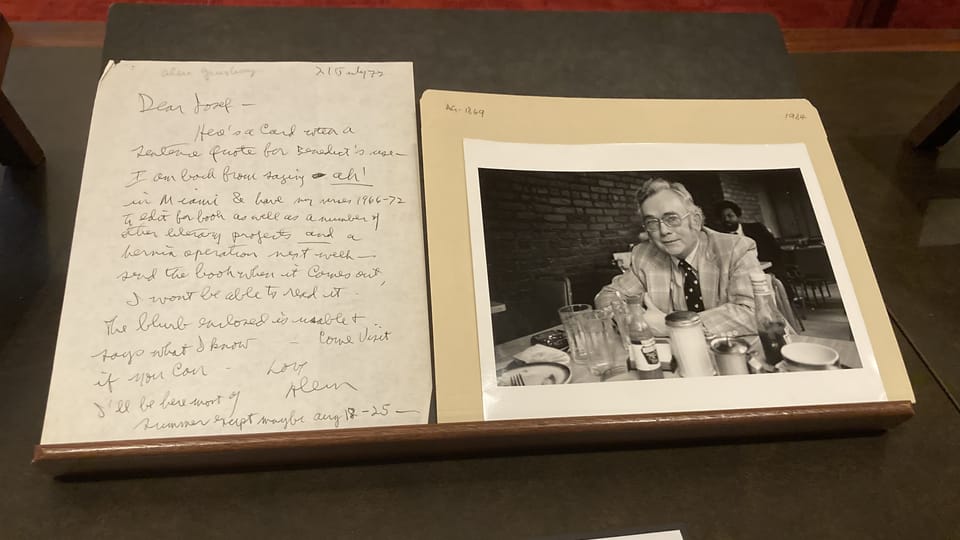 Allen Ginsberg
21 July 72
Dear Josef —
Here's a Card with a
sentence quote for Benedict's use —
I am back from saying ah!
in Miami & have my verses 1966-72
to edit for book as well as a number of
other literary projects and a
hernia operation next week —
send the book when it comes out,
I wont be able to read it
The blurb enclosed is usable &
says what I know — Come Visit
if you Can — Love
Allen
I'll be here most of
summer except maybe Aug 18-25 —
AG-1369
1984